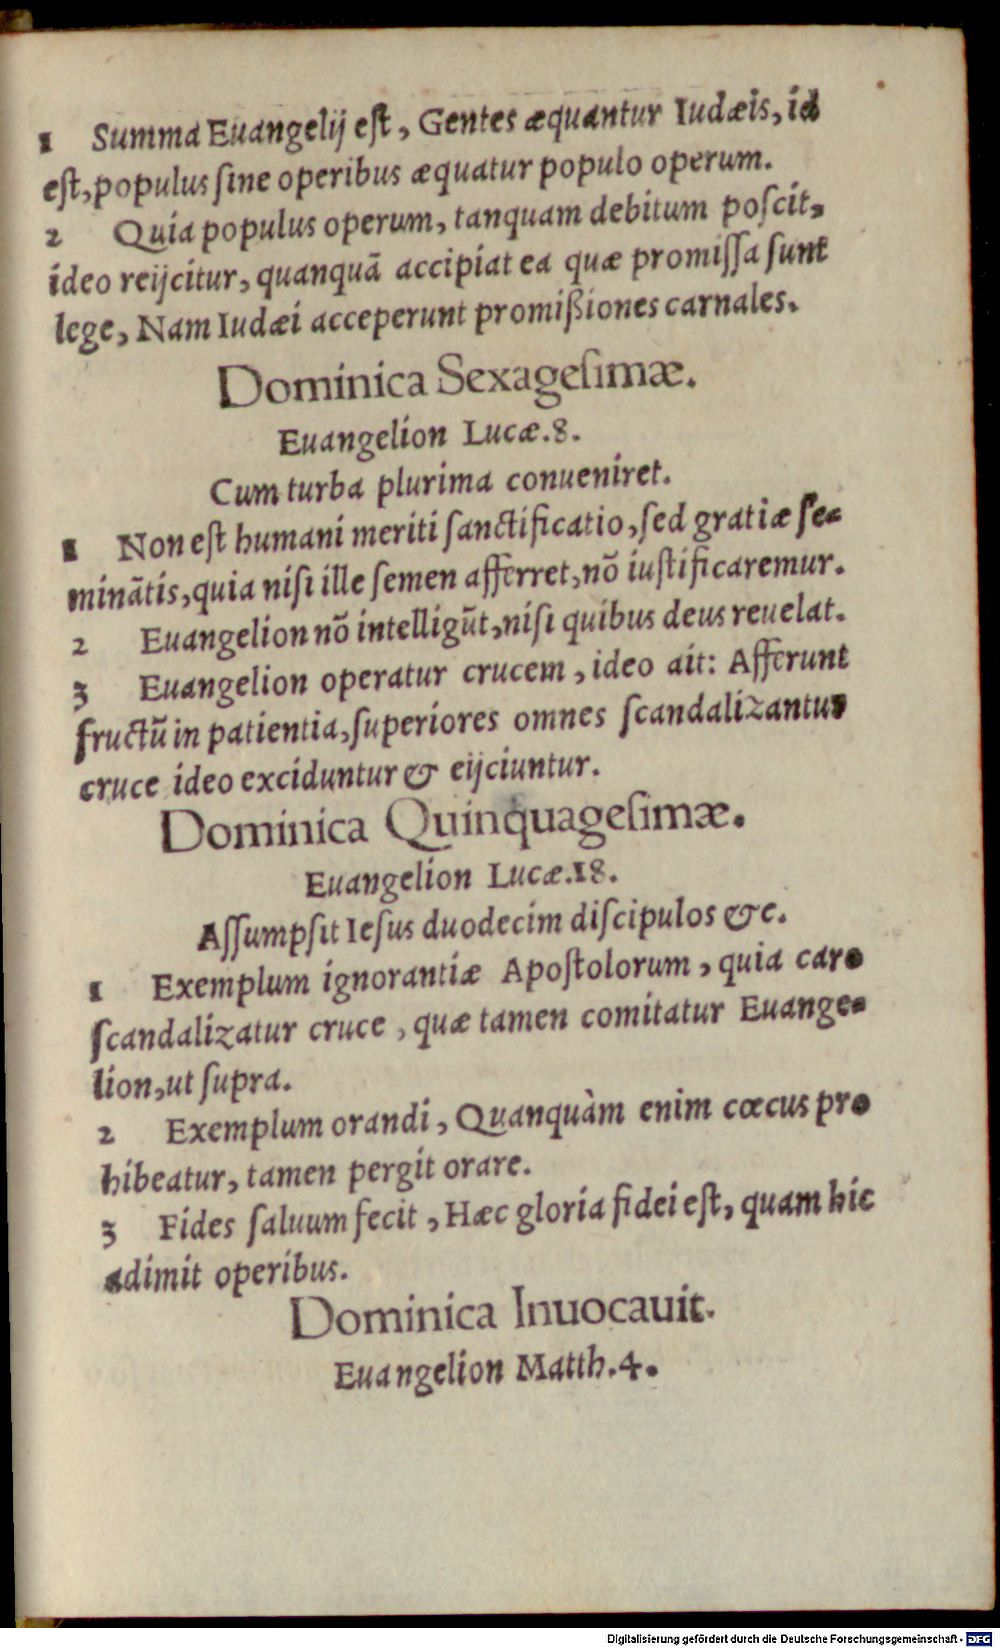 1 Summa Euangelij eſt, Gentes æquantur Iudæis, id
eſt, populus ſine operibus æquatur populo operum.
2 Quia populus operum, tanquam debitum poſcit,
ideo reijcitur, quanquā accipiat ea quæ promiſſa ſunt
lege, Nam Iudæi acceperunt promißiones carnales.
Dominica Sexageſimæ.
Euangelion Lucæ.8.
Cum turba plurima conueniret.
1 Non eſt humani meriti ſanctificatio, ſed gratiæ ſe-
minātis, quia niſi ille ſemen afferret, nō iuſtificaremur.
2 Euangelion nō intelligūt, niſi quibus deus reuelat.
3 Euangelion operatur crucem, ideo ait: Afferunt
fructū in patientia, ſuperiores omnes ſcandalizantur
cruce ideo exciduntur & eijciuntur.
Dominica Quinquageſimæ.
Euangelion Lucæ.18.
Aſſumpſit Ieſus duodecim diſcipulos &c.
1 Exemplum ignorantiæ Apoſtolorum, quia caro
ſcandalizatur cruce, quæ tamen comitatur Euange-
lion, ut ſupra.
2 Exemplum orandi, Quanquàm enim cœcus pro
hibeatur, tamen pergit orare.
3 Fides ſaluum fecit, Hæc gloria fidei eſt, quam hic
adimit operibus.
Dominica Inuocauit.
Euangelion Matth.4.
Digitalisierung gefördert durch die Deutsche Forschungsgemeinschaft - DFG